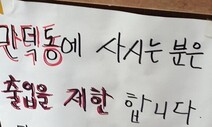 만덕동에 사시는 분은
출입을 제한 합니다.